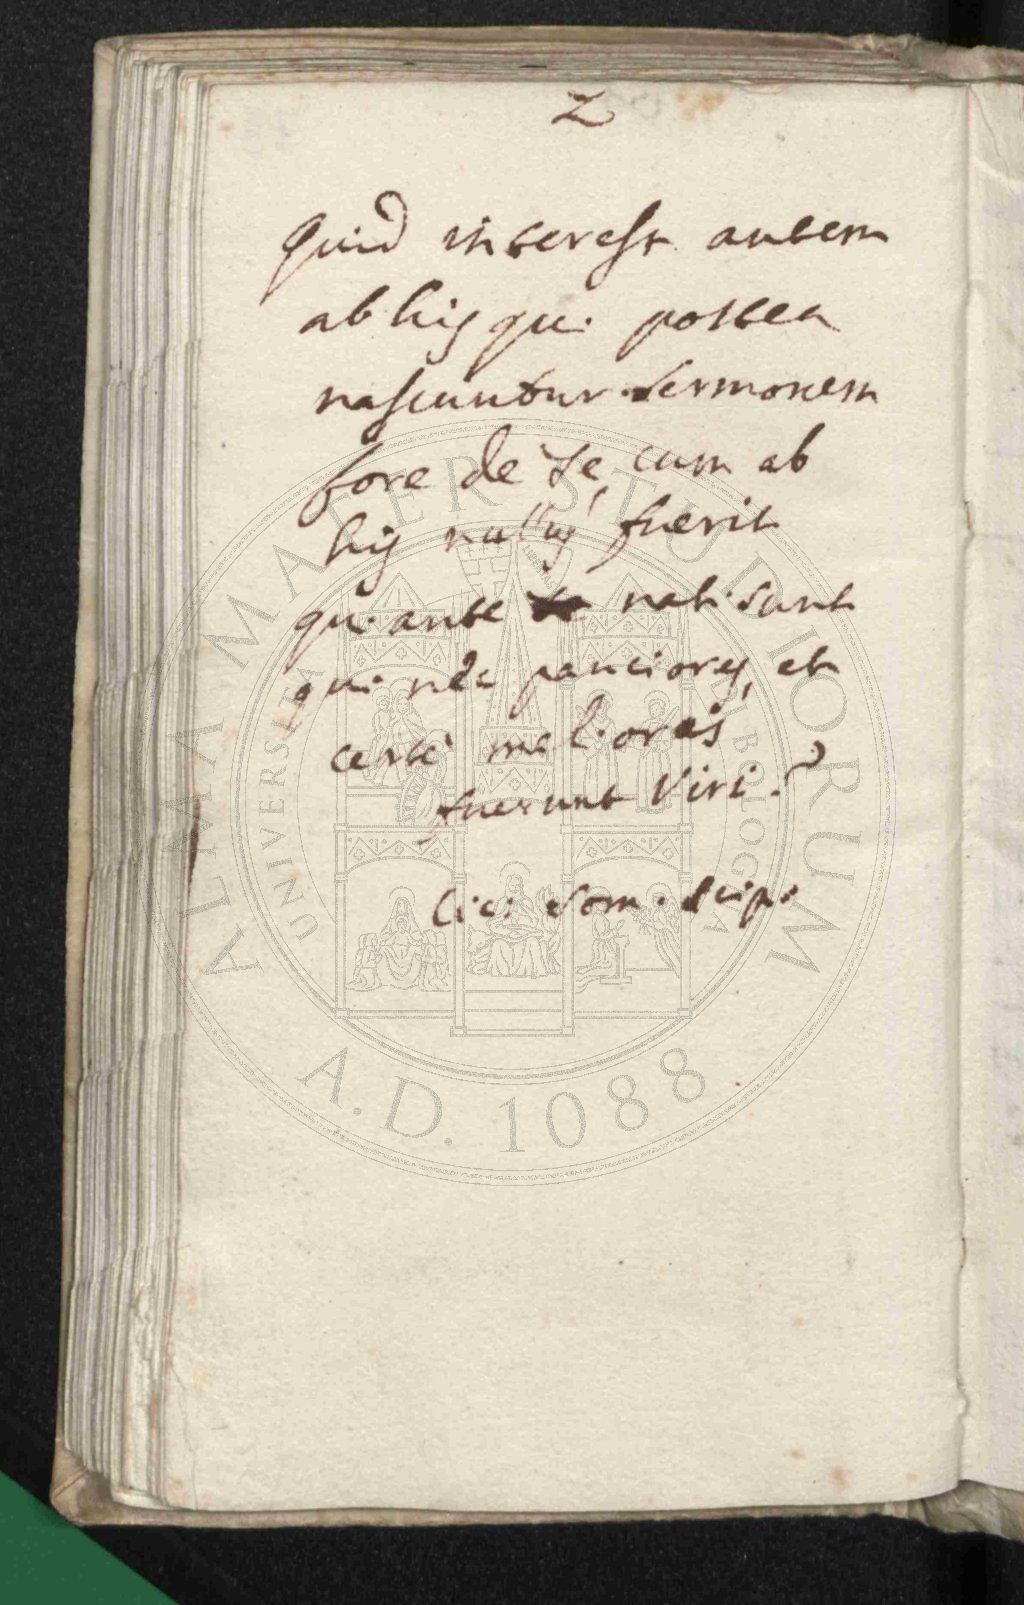 2
Quid interest autem
ab his qui postea
nascuntur sermonem
fore de te, cum ab
his nullus fuerit
qui ante nati sunt
qui nec pauciores, et
certè meliores
fuerunt Viri?
Cic: Som. Scip:
ALMA MATER STUDIORUM
UNIVERSITÀ DI BOLOGNA
A.D. 1088